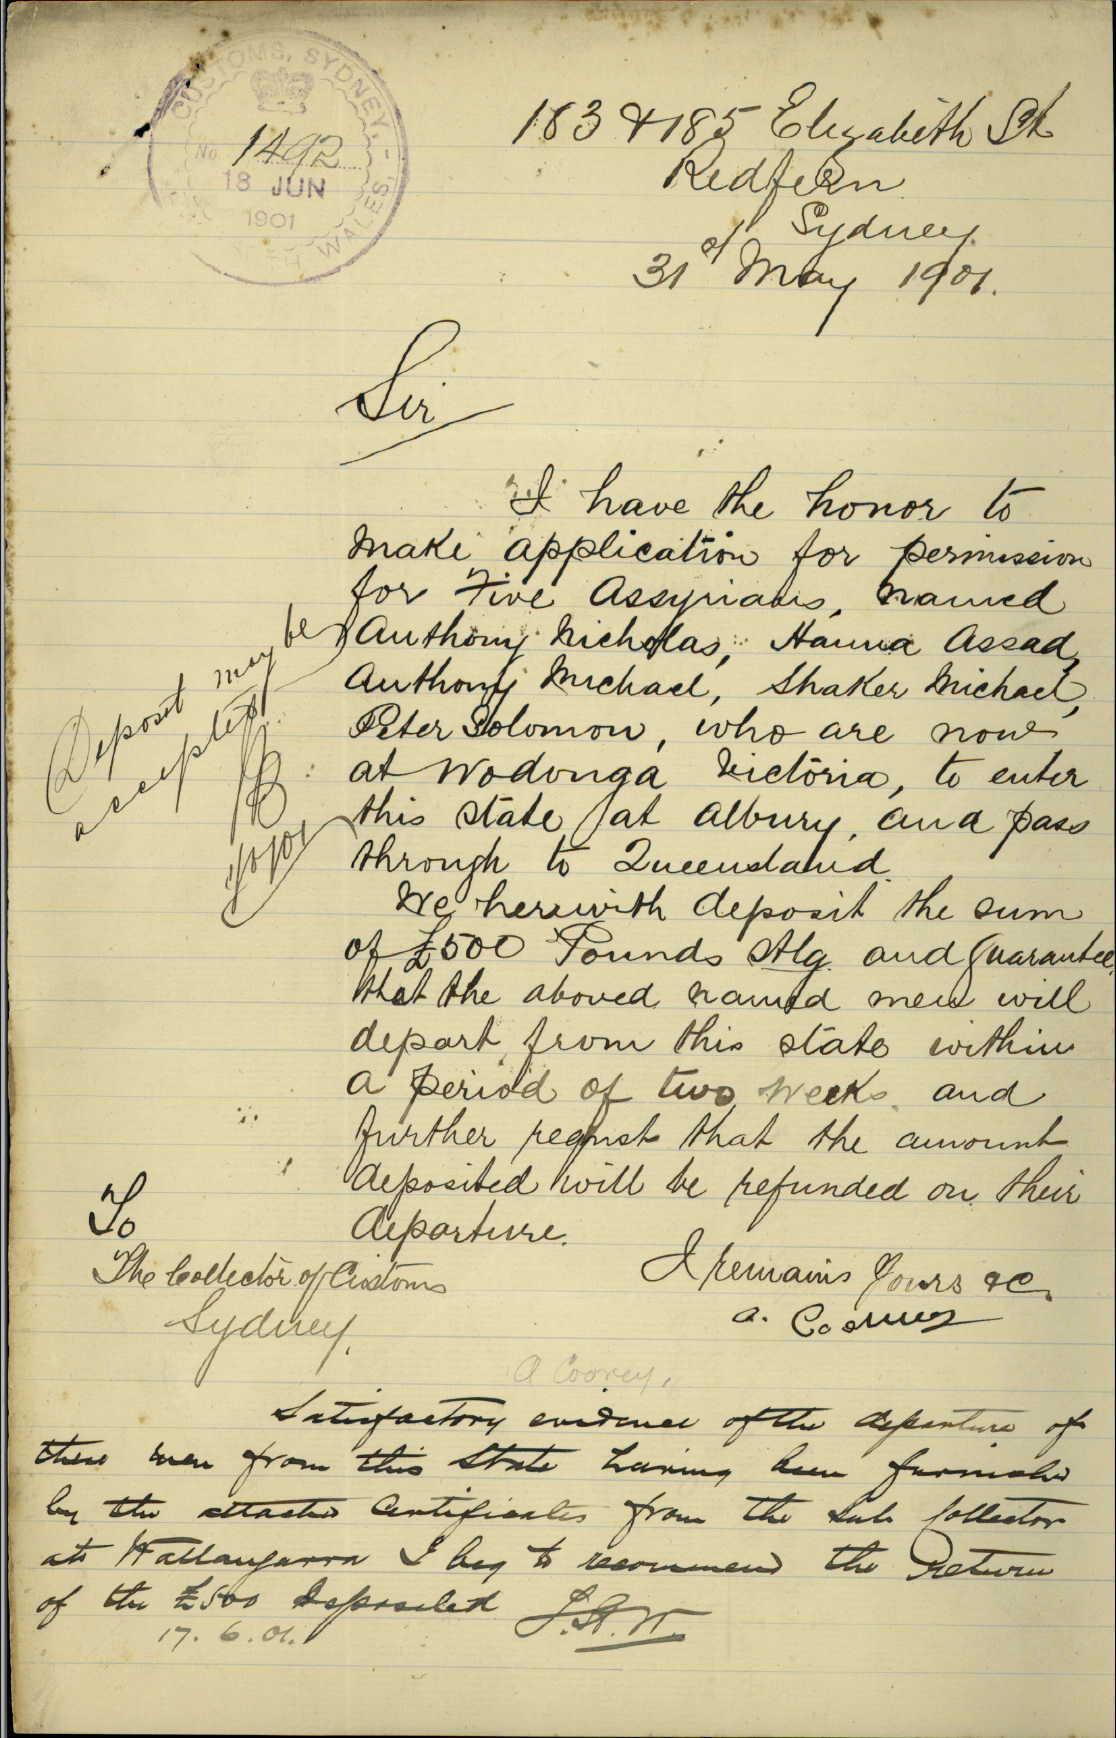 CUSTOMS, SYDNEY,
WALES.
No 1492
18 JUN
1901
183 & 185 Elizabeth St
Redfern
Sydney
31st May 1901.
Sir
I have the honor to
make application for permission
for Five Assyrians, named
Anthony Nicholas, Hanna Assad,
Anthony Michael, Shaker Michael,
Peter Solomon, who are now
at Wodonga Victoria, to enter
this state at Albury, and pass
through to Queensland.
We herewith deposit the sum
of £500 Pounds Stlg. and Guarantee,
that the aboved named men will
depart from this state within
a period of two weeks. and
further request that the amount
deposited will be refunded on their
departure.
Deposit may be
accepted
To
The Collector of Customs
Sydney.
I remains Yours &c.
A. Coorey
A Coorey,
Satisfactory evidence of the departure of
these men from this State having been furnished
by the attached Certificates from the Sub Collector
at Wallangarra I beg to recommend the Return
of the £500 Deposited
17. 6. 01.